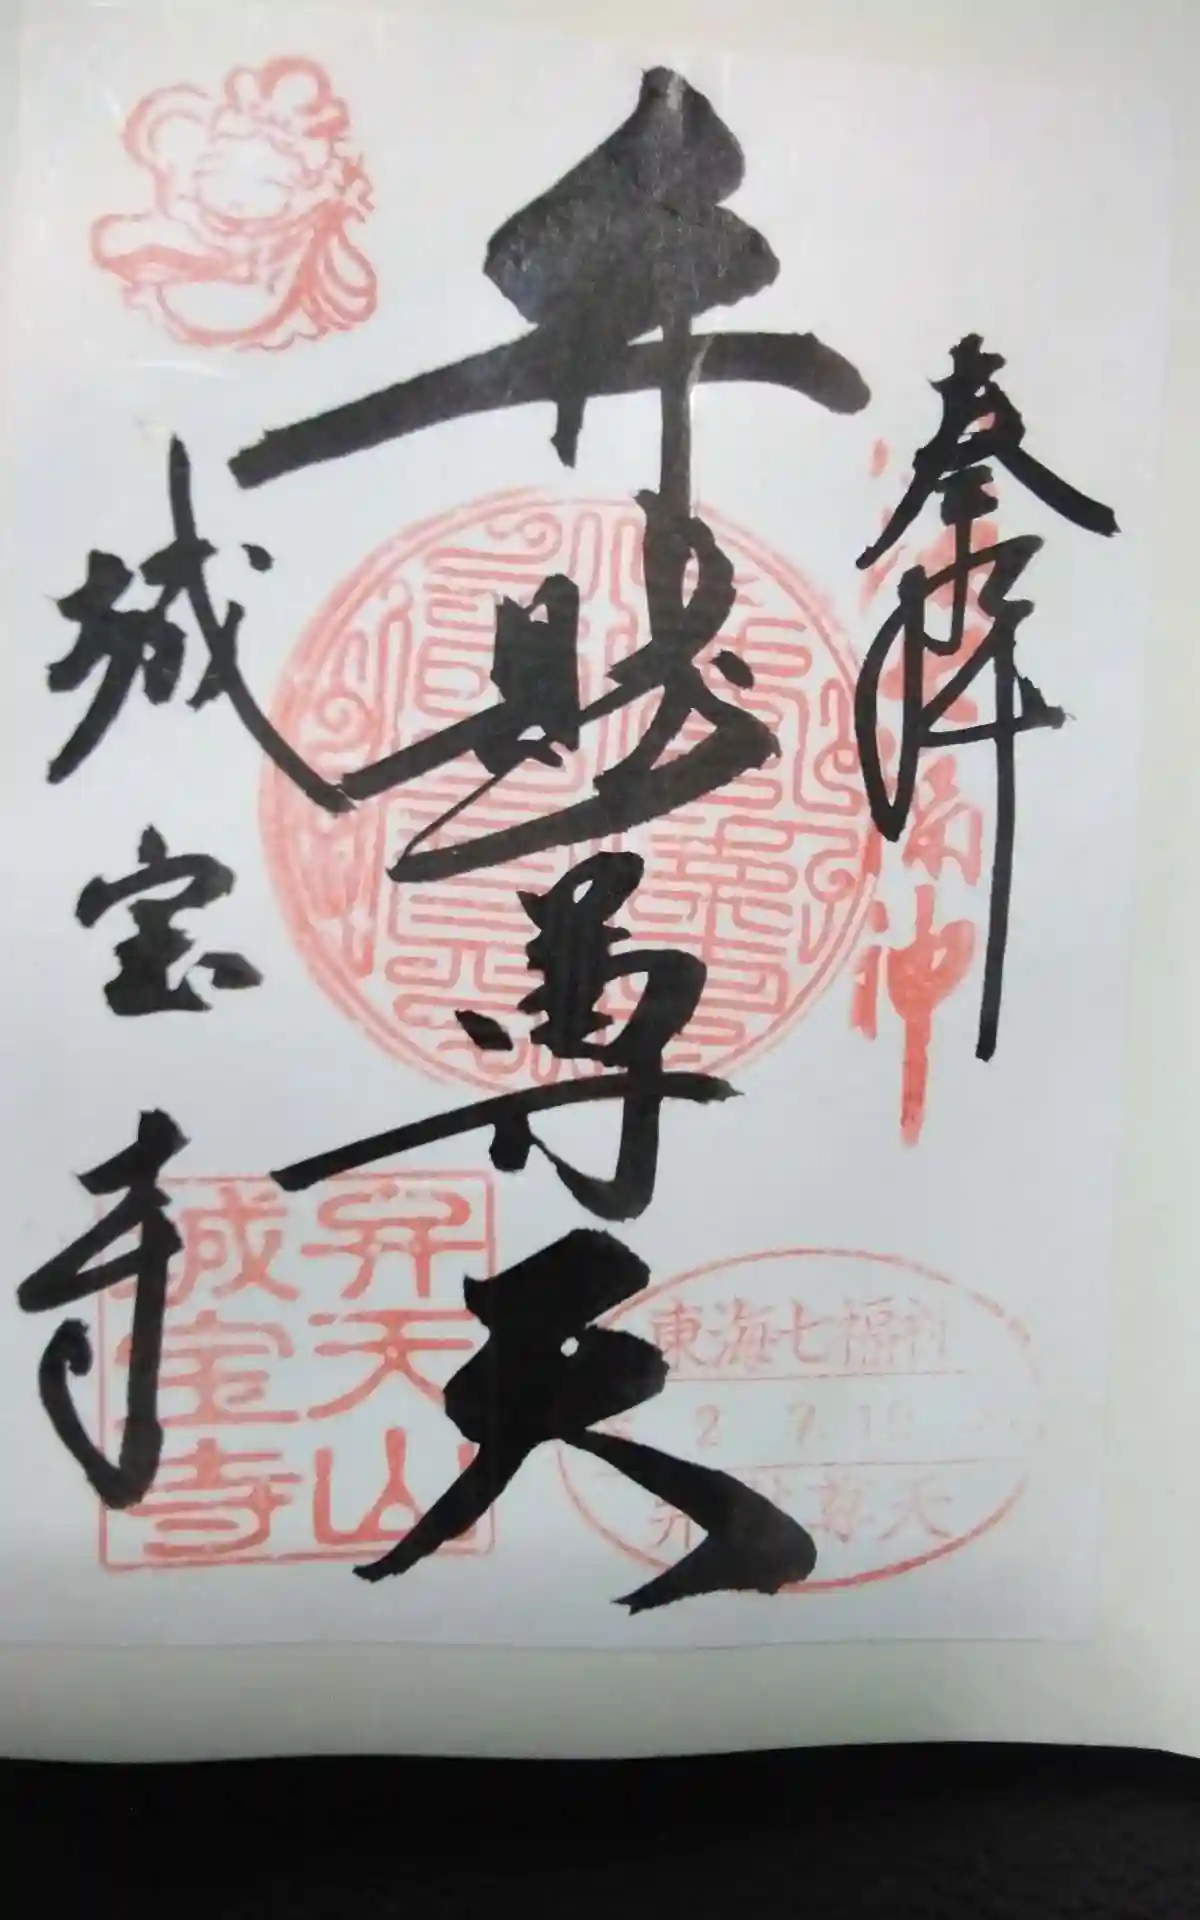 奉拝
七福神
弁財尊天
城宝寺
弁天山
城宝寺
東海七福神
2 7.18
弁財尊天